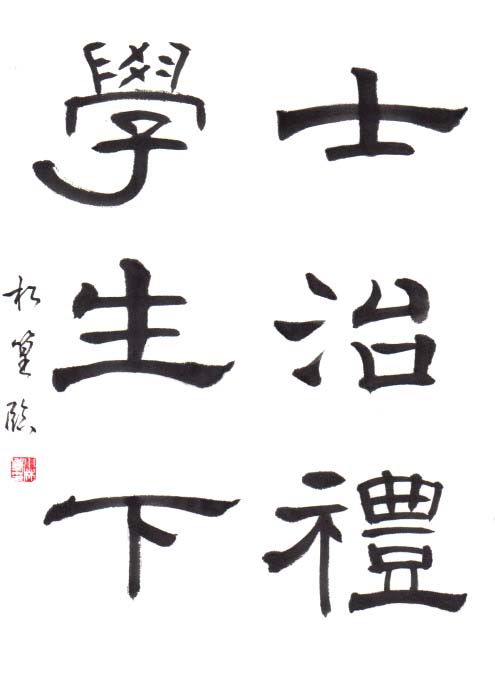 士治禮
學生下
松篁臨